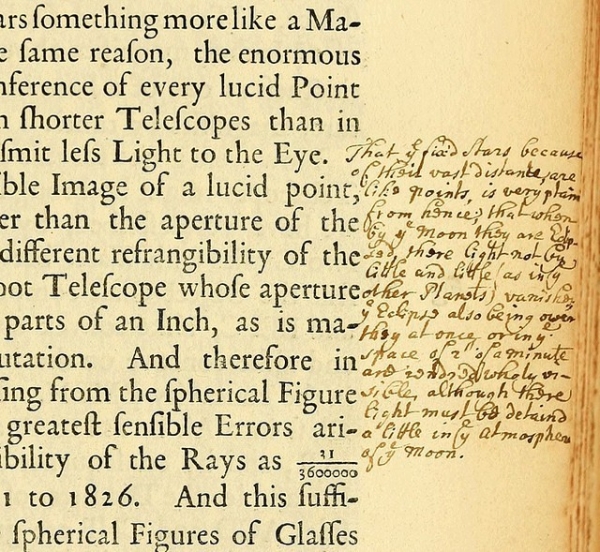 ars something more like a Ma-
e ſame reaſon, the enormous
nference of every lucid Point
n ſhorter Teleſcopes than in
ſmit leſs Light to the Eye.
ible Image of a lucid point,
er than the aperture of the
different refrangibility of the
oot Teleſcope whoſe aperture
parts of an Inch, as is ma-
utation. And therefore in
ing from the ſpherical Figure
greateſt ſenſible Errors ari-
ibility of the Rays as 31/3600000
1 to 1826. And this ſuffi-
ſpherical Figures of Glaſſes
That ÿ fixd Stars because
of their vast distance, are
like points, is very plain
from hence; that when
by ÿ Moon they are Ecly-
sed, there light not by
little and little (as in ÿ
other Planets) vanishes,
ÿ Eclipse also being over
they at once or in ÿ
space of 2" of a minute
are rendred wholy vi-
sible, although there
light must be detaind
a little in ÿ Atmosphere
of ÿ Moon.